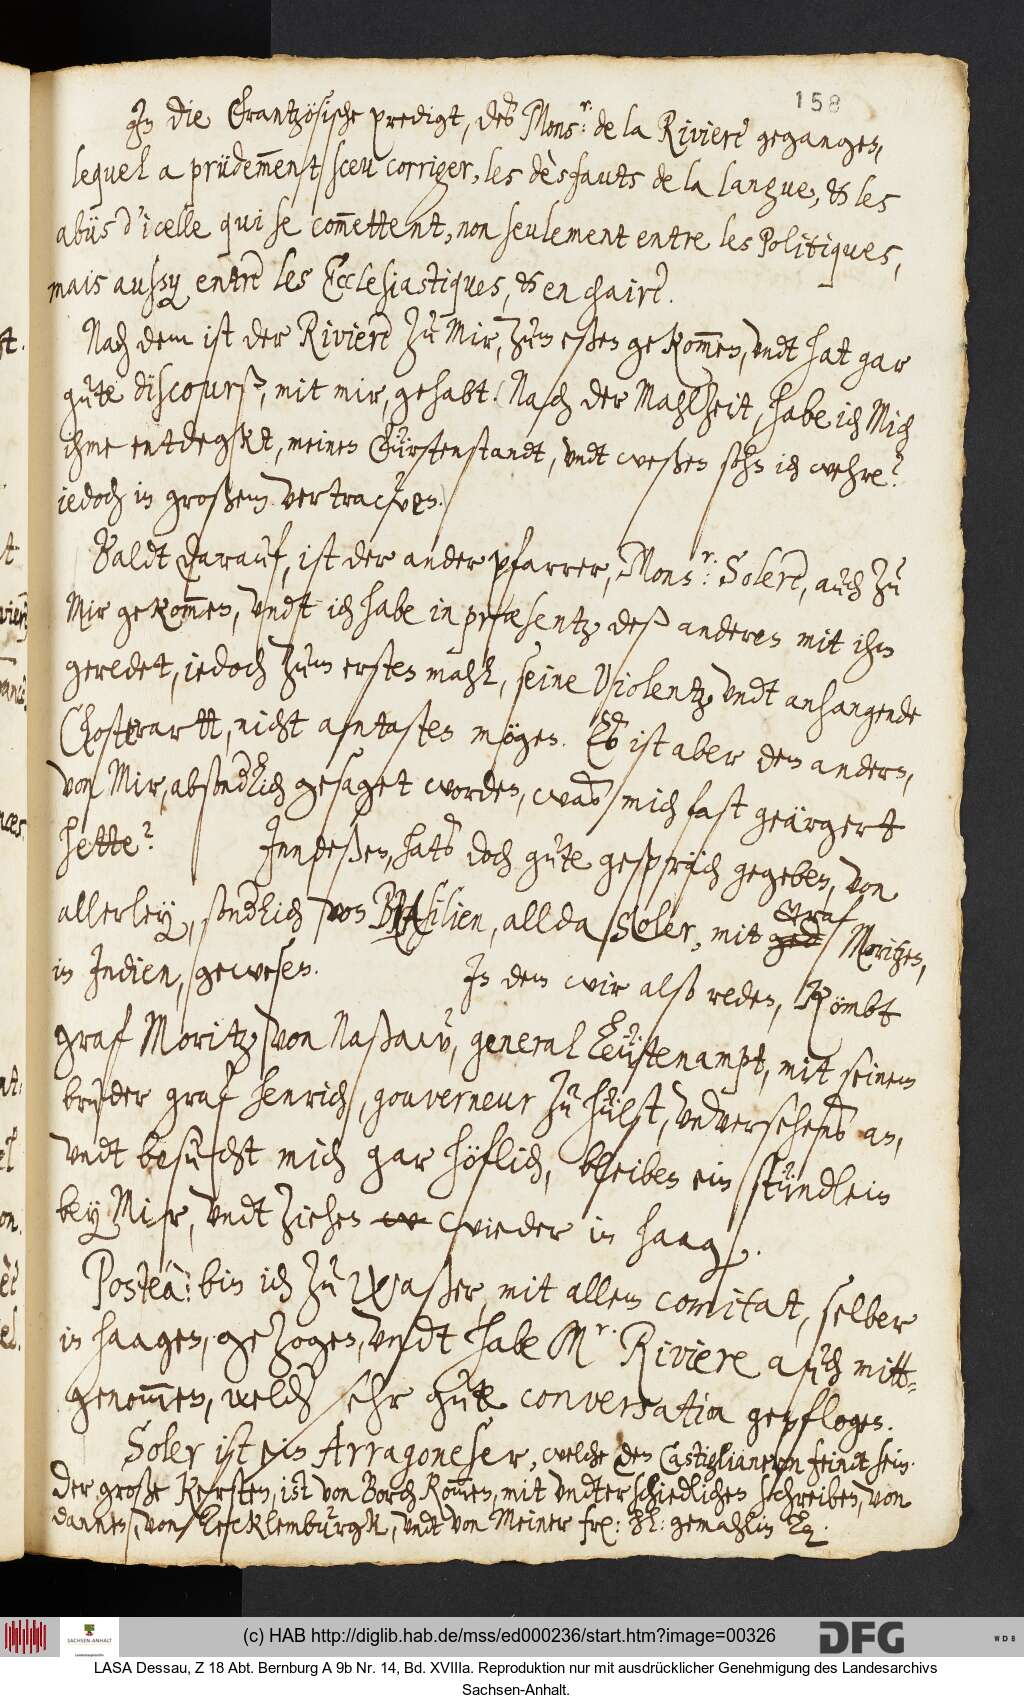 158
In die Frantzösische predigt, des Mons:r de la Riviere gegangen,
lequel a prüdem̅ent sceu corriger, les dèsfauts de la langue, & les
abüs d'icelle qui se com̅ettent, non seulement entre les Politiques,
mais aussy entre les Ecclesiastiques, & en chaire.
Nach dem ist der Riviere zu Mir, zum eßen gekom̅en, vndt hat gar
gute discourß, mit mir, gehabt. (Nach der Mahlzeit, habe ich Mich
ihme entdegkt, meinen Fürstenstandt, vndt weßen sohn ich wehre?
iedoch in großem vertrawen.)
Baldt darauf, ist der ander pfarrer, Mons:r Solere, auch zu
Mir gekom̅en, vndt ich habe in præsentz deß anderen mit ihm
geredet, iedoch zum ersten mahl, seine Violentz vndt anhangende
Closterartt, nicht antasten mögen. Es ist aber dem andern,
von Mir, absonderlich gesaget worden, was mich fast geärgert
hette? Inndeßen, hats doch gute gespräch gegeben, von
allerley, sonderlich von Brasilien, allda Soler, mit Graf Moritzen,
in Indien, gewesen. In dem wir also reden, kömbt
graf Moritz von Naßaw, general Leütenampt, mit seinem
bruder graf Henrich, gouverneur zu Hulst, vnversehens an,
vndt besucht mich gar höflich, bleiben ein stündlein
bey Mir, vndt ziehen w wieder in Haag.
Posteà: bin ich zu Waßer, mit allem comitat, selber
in Haagen, gezogen, vndt habe Mr. Riviere auch mitt-
genom̅en, welcher sehr gute conversation gepflogen.
Soler ist ein Arragoneser, welche den Castiglianern feindt sein.
Der große Kersten, ist von Borch kom̅en, mit vndterschiedlichen schreiben, von
dannen, von Leeklemburgk, vndt von Meiner frl: hl: gemahlin Eg.
(c) HAB http://diglib.hab.de/mss/ed000236/start.htm?image=00326
SACHSEN-ANHALT
DFG
WDB
LASA Dessau, Z 18 Abt. Bernburg A 9b Nr. 14, Bd. XVIIIa. Reproduktion nur mit ausdrücklicher Genehmigung des Landesarchivs
Sachsen-Anhalt.